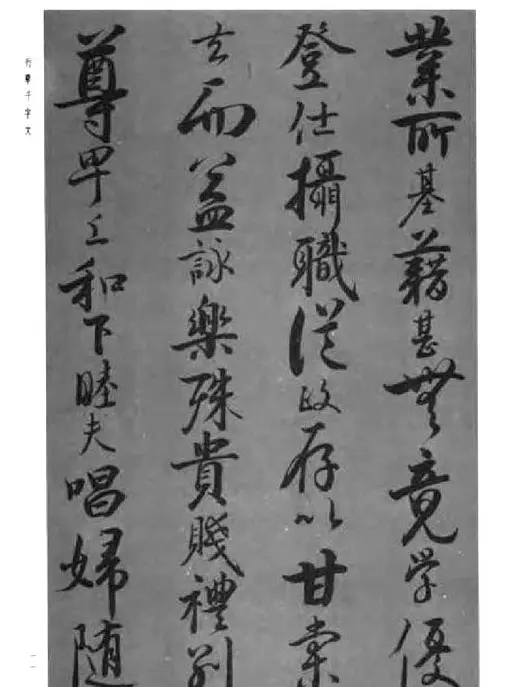 業所基藉甚無竟学優
登仕攝職從政存以甘棠
去而益詠樂殊貴賤禮別
尊卑上和下睦夫唱婦隨
行草千字文
一一